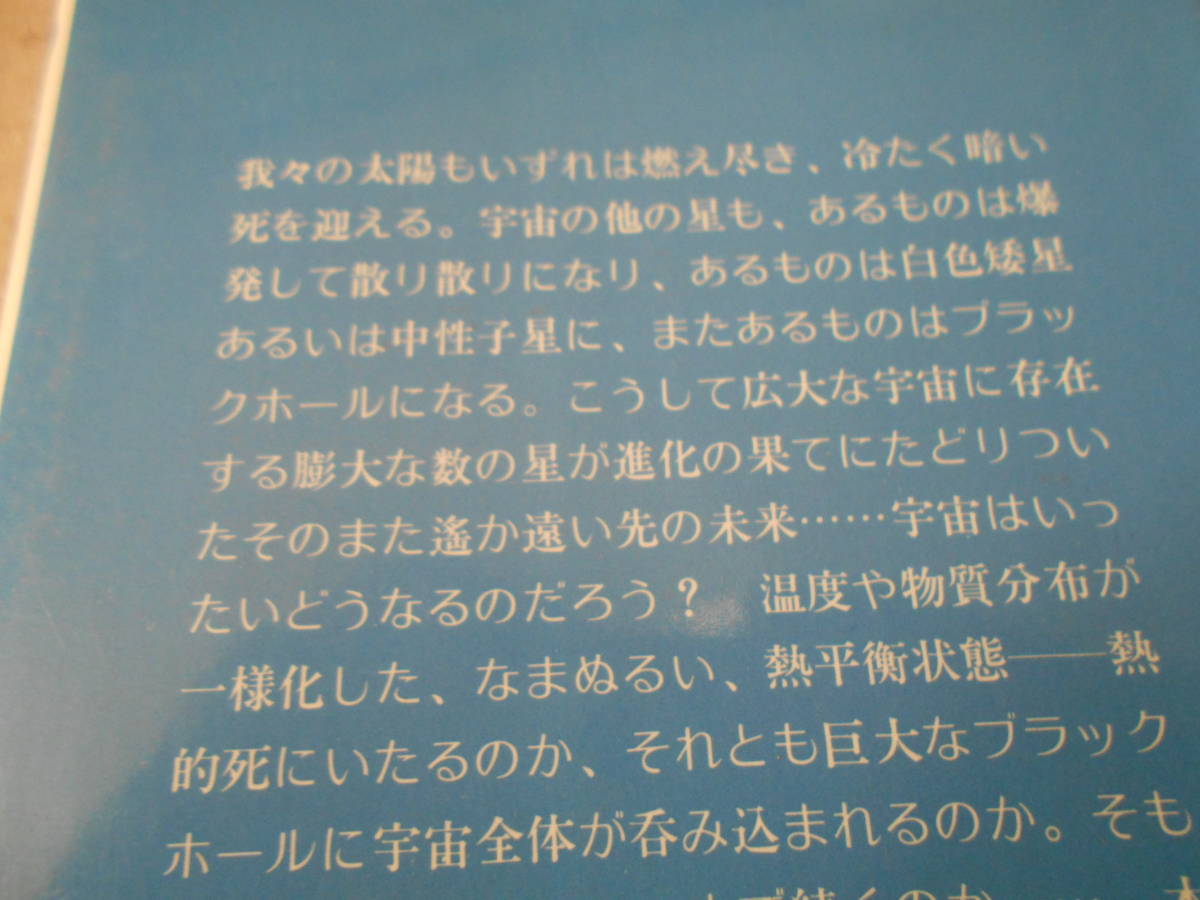 我々の太陽もいずれは燃え尽き、冷たく暗い
死を迎える。宇宙の他の星も、あるものは爆
発して散り散りになり、あるものは白色矮星
あるいは中性子星に、またあるものはブラッ
クホールになる。こうして広大な宇宙に存在
する膨大な数の星が進化の果てにたどりつい
たそのまた遙か遠い先の未来……宇宙はいっ
たいどうなるのだろう？　温度や物質分布が
一様化した、なまぬるい、熱平衡状態――熱
的死にいたるのか、それとも巨大なブラック
ホールに宇宙全体が呑み込まれるのか。そも
で続くのか